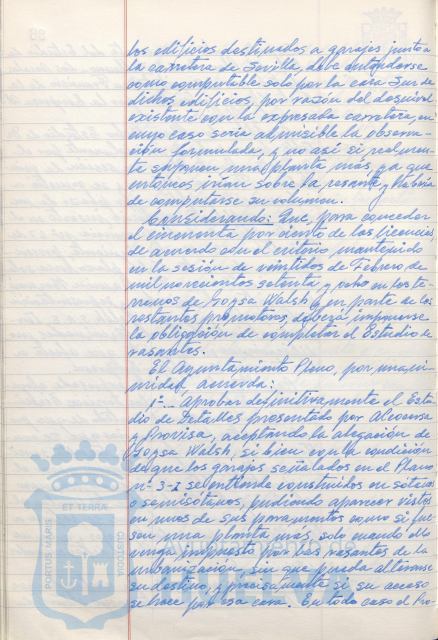 los edificios destinados a garajes junto a
la carretera de Sevilla, debe entenderse
como computable solo por la cara Sur de
dichos edificios, por razón del desnivel
existente con la expresada carretera, en
cuyo caso sería admisible la observa-
ción formulada, y no así si realmen-
te suponen una planta más, ya que
entonces irían sobre la rasante y habría
de computarse su volumen.
Considerando: Que, para conceder
el cincuenta por ciento de las licencias,
de acuerdo con el criterio mantenido
en la sesión de veintidos de Febrero de
mil novecientos setenta y ocho en los te-
rrenos de Goysa Walsh y en parte de los
restantes promotores, deberá imponerse
la obligación de completar el Estudio de
rasantes.
El Ayuntamiento Pleno, por unani-
midad acuerda:
1º.- Aprobar definitivamente el Estu-
dio de Detalles presentado por Alcoensa
y Provisa, aceptando la alegación de
Goysa Walsh, si bien con la condición
de que los garajes señalados en el Plano
nº 3-I se entiende construidos en sótanos
o semisótanos, pudiendo aparecer vistos
en unos de sus paramentos como si fue-
sen una planta más, solo cuando ello
venga impuesto por las rasantes de la
urbanización, sin que pueda alterarse
su destino, y precisamente si su acceso
se hace por esa cara. En todo caso el Pro-
PORTUS MARIS
ET TERRA
CUSTODIA